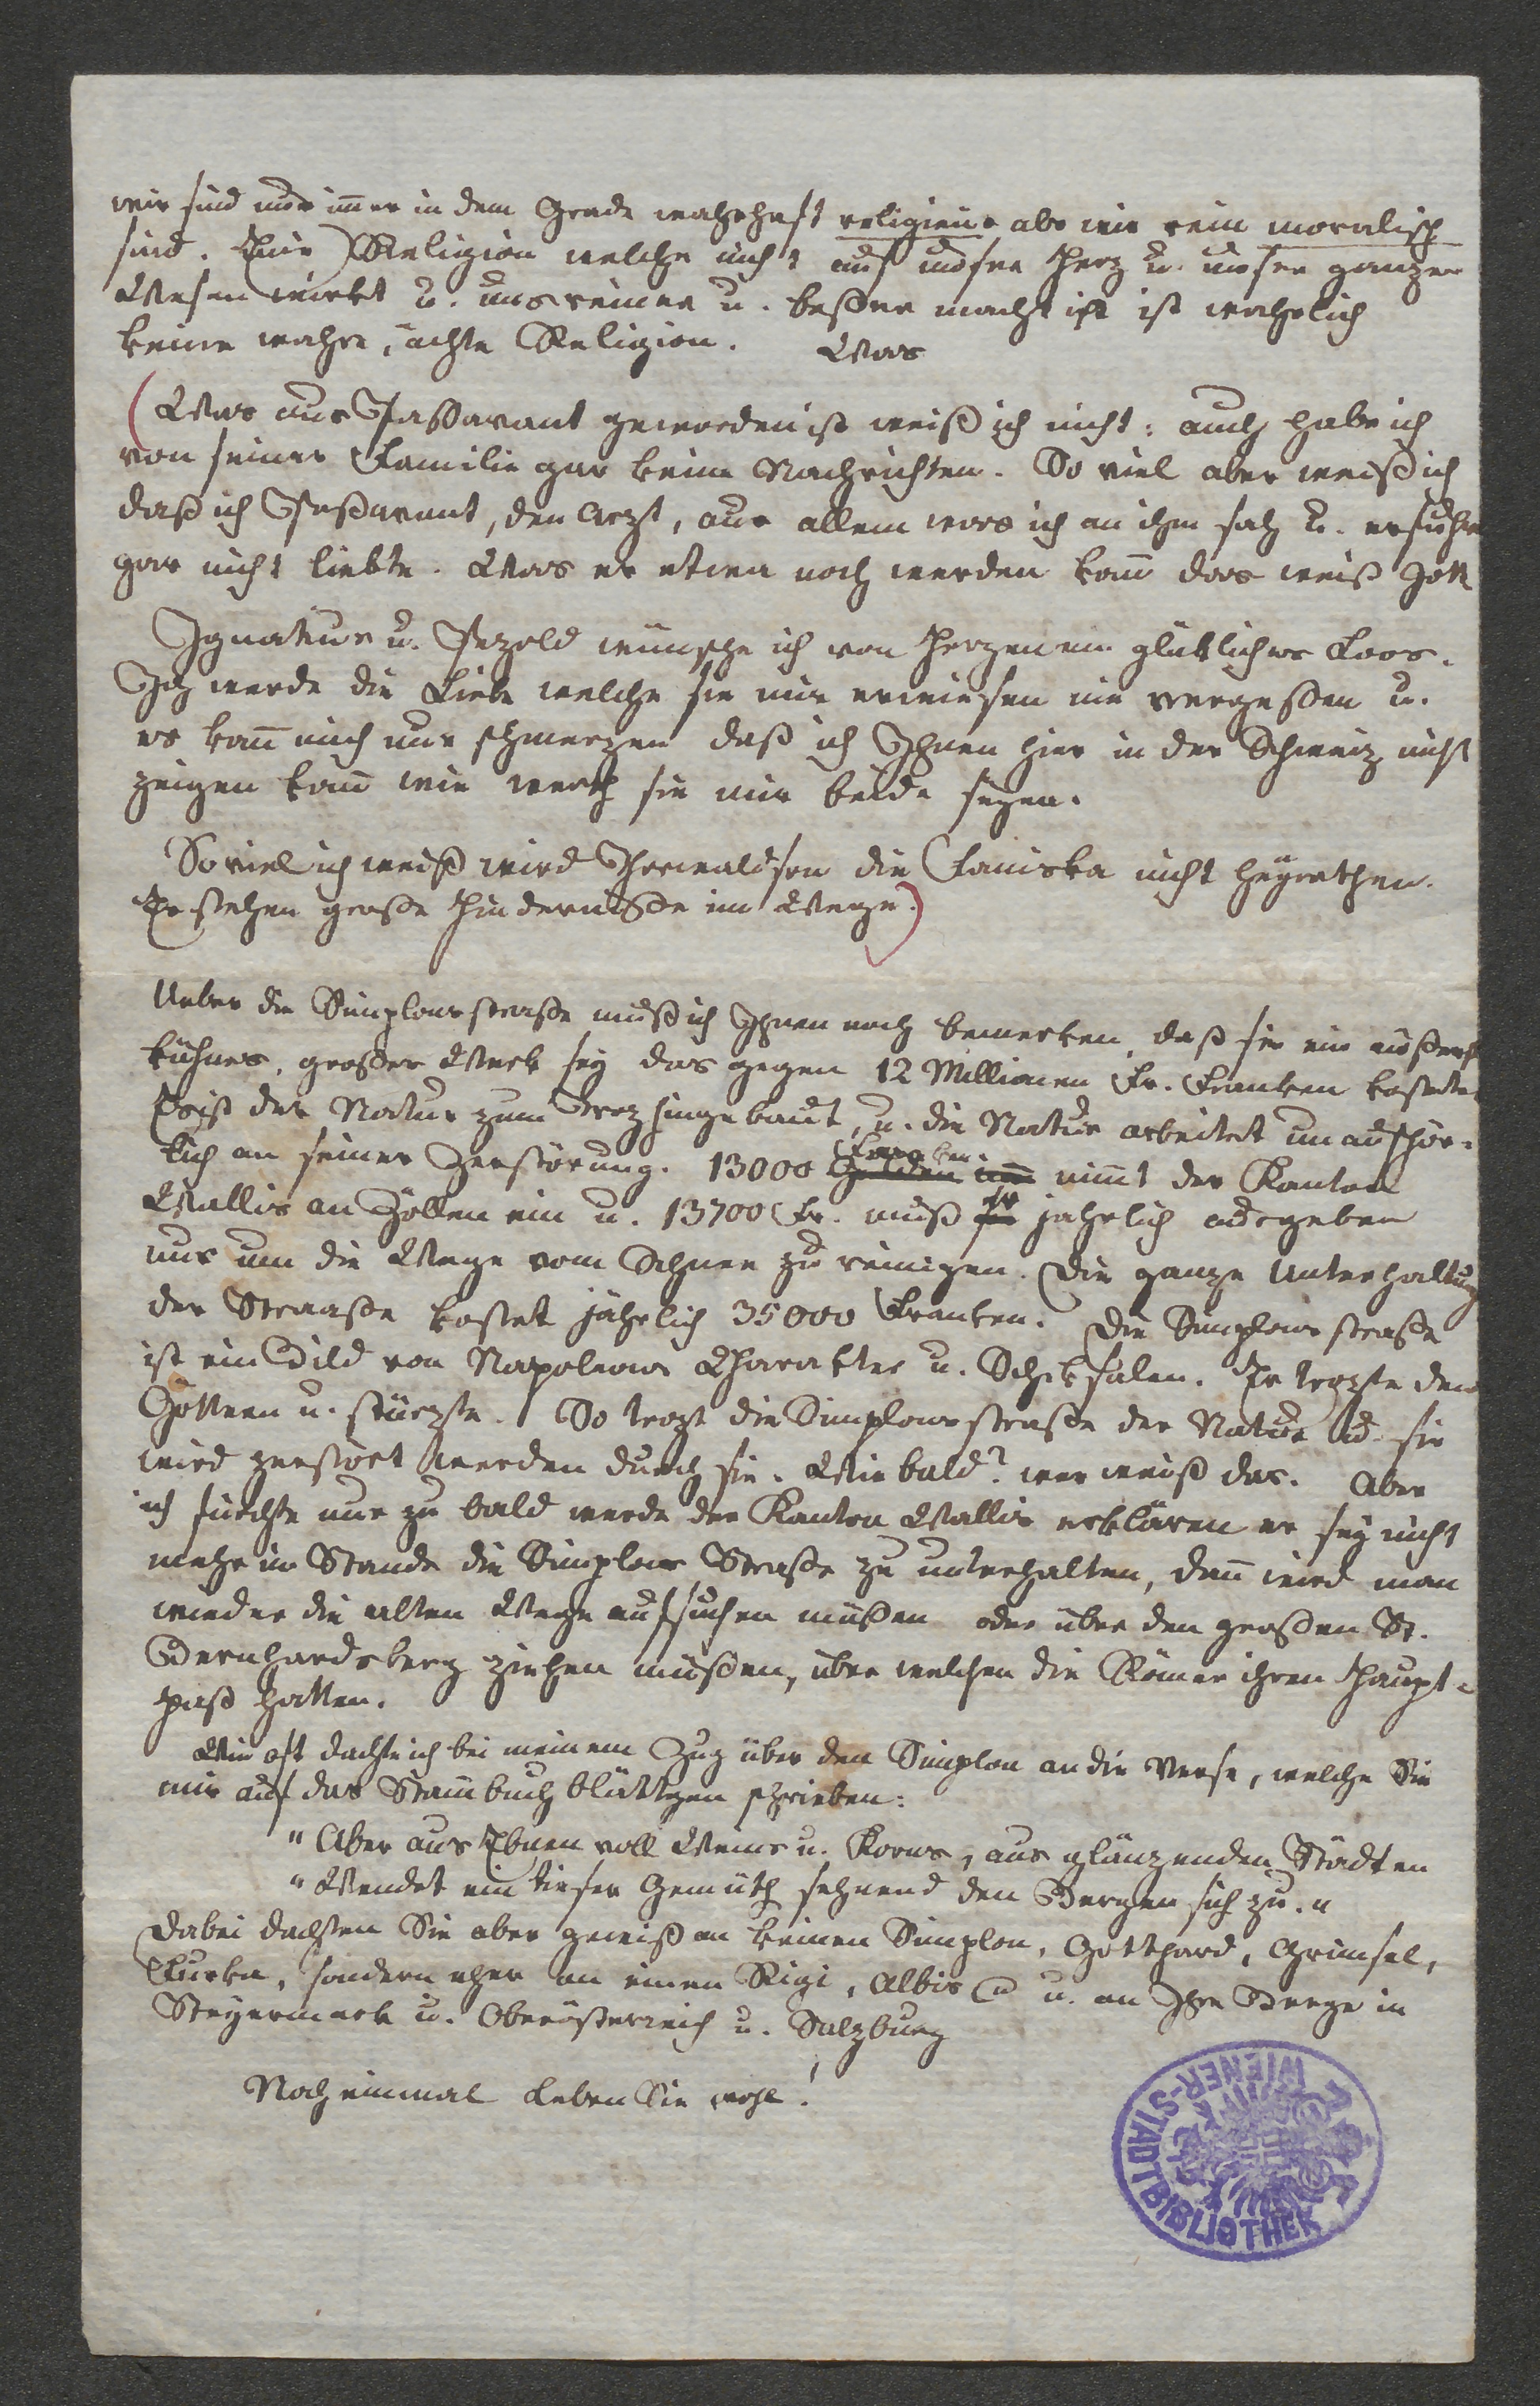 wir sind nur im̄er in dem Grade wahrhaft religieus als wir rein moralisch
sind. Eine Religion welche nicht auf unser Herz u. unser ganzes
Wesen wirkt u. uns reiner u. besser macht ist ist wahrlich
keine wahre, ächte Religion. Was
(Was aus Passavant geworden ist weiß ich nicht: auch habe ich
von seiner Familie gar keine Nachrichten. So viel aber weiß ich
daß ich Passavant, den Arzt, aus allem was ich an ihm sah u. erfuhr
gar nicht liebte. Was er etwa noch werden kan̄ das weiß Gott
Ignatius u. Pezold wünsche ich von Herzen ein glükliches Loos.
Ich werde die Liebe welche sie mir erwiesen nie vergeßen u.
es kan̄ mich nur schmerzen daß ich Ihnen hier in der Schweiz nicht
zeigen kan̄ wie werth sie mir beide seyen.
So viel ich weiß wird Thorwaldsen die Caniska nicht heyrathen.
Es stehen große Hinderniße im Wege.)
Ueber die Simplonsstraße muß ich Ihnen noch bemerken, daß sie ein äußerst
kühnes, großes Werk sey das gegen 12 Millionen Fr. Franken kostete.
Es ist der Natur zum Troz hingebaut, u. die Natur arbeitet unaufhör-
lich an seiner Zerstörung. 13000 Franken nim̄t der Kanton
Wallis an Zöllen ein u. 13700 Fr. muß er jährlich ausgeben
nur um die Wege vom Schnee zu reinigen. Die ganze Unterhaltung
der Straaße kostet jährlich 35000 Franken. Die Simplonsstraße
ist ein Bild von Napoleons Charakter u. Schiksalen. Er trozte den
Göttern u. stürzte. So trozt die Simplonsstraße der Natur u. sie
wird zerstört werden durch sie. Wie bald? wer weiß das. Aber
ich fürchte nur zu bald werde der Kanton Wallis erklären er sey nicht
mehr im Stande die Simplons Straße zu unterhalten, dan̄ wird man
wieder die alten Wege aufsuchen müßen oder über den großen St.
Bernhardsberg ziehen müßen, über welchen die Römer ihren Haupt-
paß hatten.
Wie oft dachte ich bei meinem Zug über den Simplon an die Verse, welche Sie
mir auf das Stam̄buchblättchen schrieben:
"Aber aus Ebnen voll Weins u. Korns, aus glänzenden Städten
"Wendet ein tiefes Gemüth sehnend den Bergen sich zu."
Dabei dachten Sie aber gewiß an keinen Simplon, Gotthard, Grimsel,
Furka, sondern eher an einen Rigi, Albis u. an Ihre Berge in
Steyermark u. Oberösterreich u. Salzburg
Noch einmal Leben Sie wohl!
WIENER-STADTBIBLIOTHEK